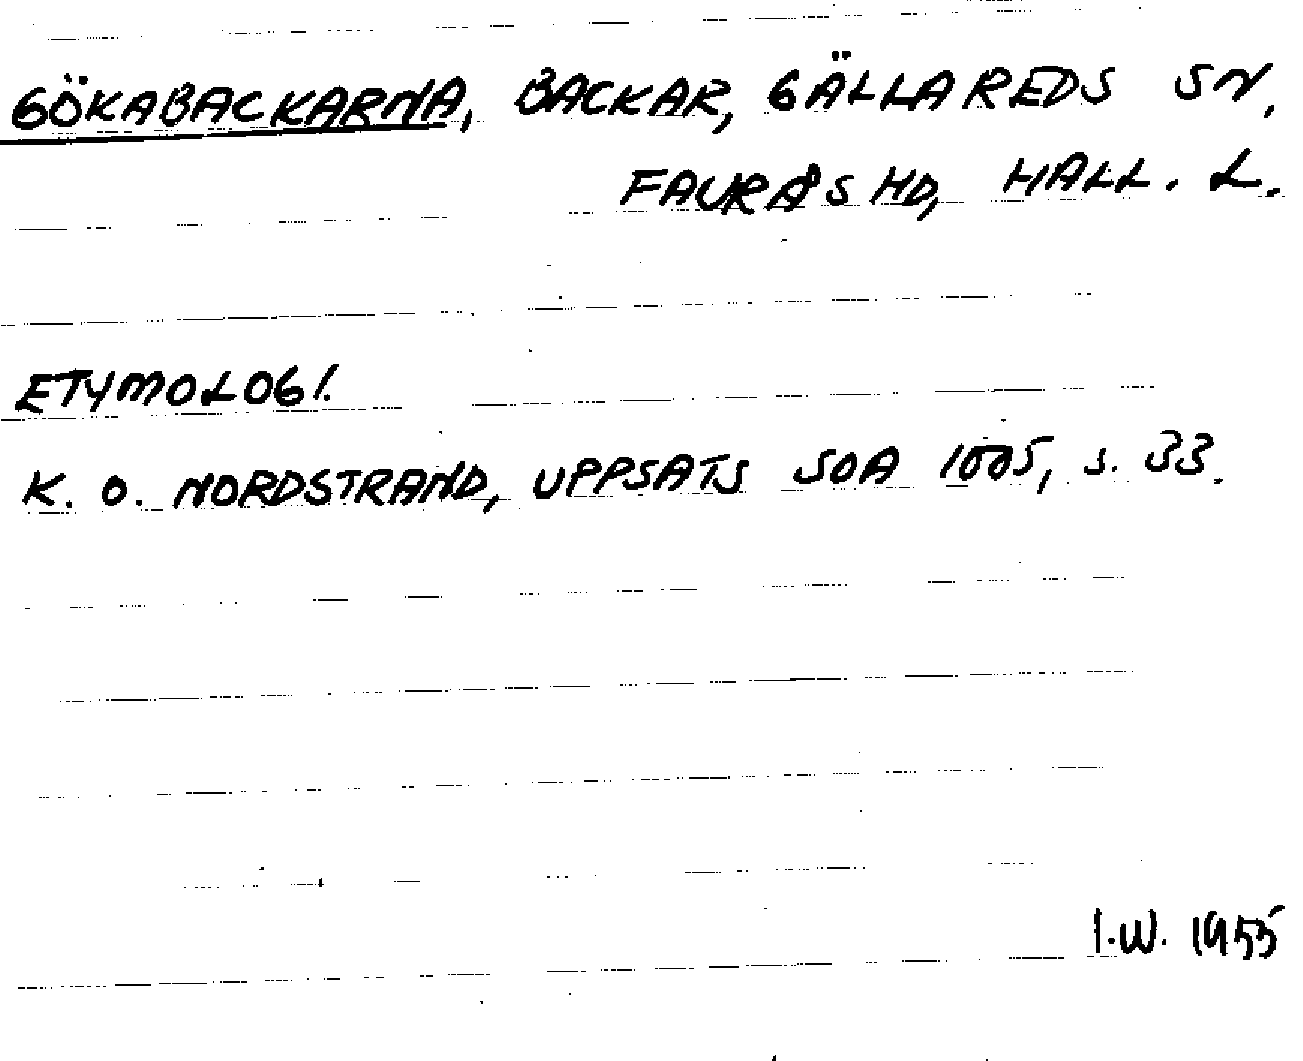 GÖKABACKARNA, BACKAR, GÄLLAREDS SN,
FAURÅS HD, HALL. L.
ETYMOLOGI.
K. O. NORDSTRAND, UPPSATS SOA 1005, s. 33.
I.W. 1955